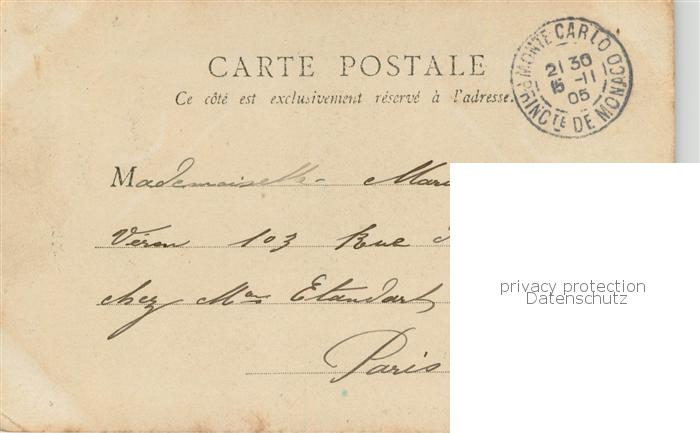 CARTE POSTALE
Ce côté est exclusivement réservé à l'adresse.
MONTE CARLO
21 30
15 -11
05
PRINCTÉ DE MONACO
Mademoiselle Mari
103 Rue
chez Mme Etandart
Paris
privacy protection
Datenschutz